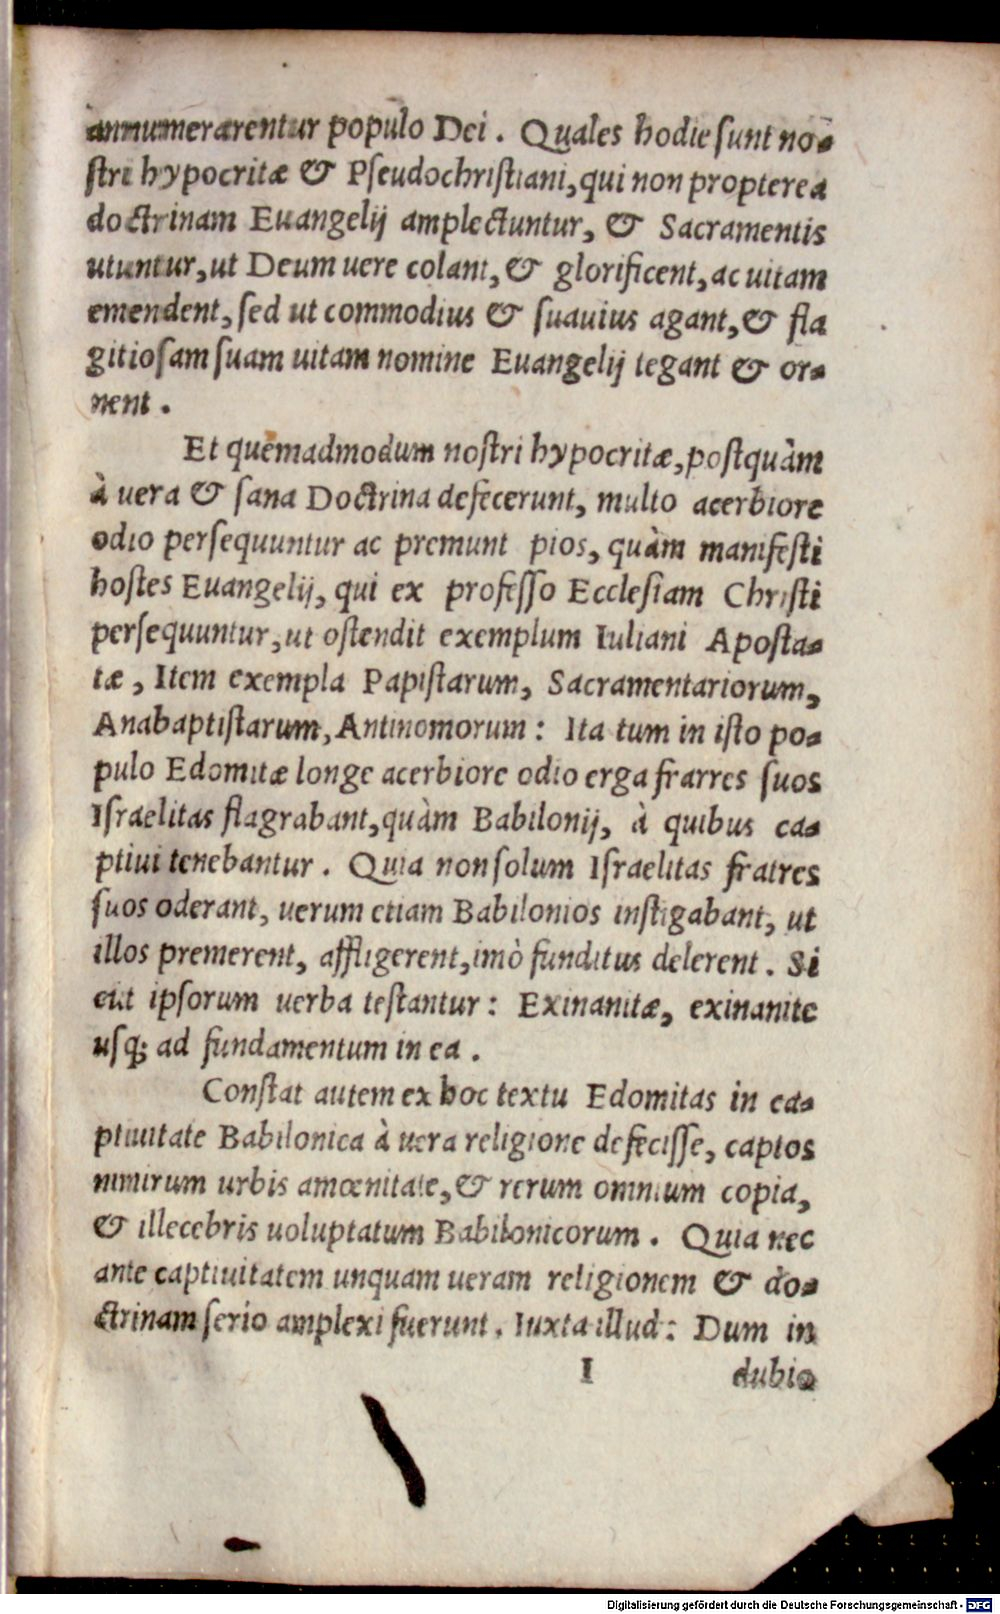 annumerarentur populo Dei. Quales hodie sunt no-
stri hypocritæ & Pseudochristiani, qui non propterea
doctrinam Euangelij amplectuntur, & Sacramentis
utuntur, ut Deum uere colant, & glorificent, ac uitam
emendent, sed ut commodius & suauius agant, & fla
gitiosam suam uitam nomine Euangelij tegant & or-
nent.
Et quemadmodum nostri hypocritæ, postquàm
à uera & sana Doctrina defecerunt, multo acerbiore
odio persequuntur ac premunt pios, quàm manifesti
hostes Euangelij, qui ex professo Ecclesiam Christi
persequuntur, ut ostendit exemplum Iuliani Aposta-
tæ, Item exempla Papistarum, Sacramentariorum,
Anabaptistarum, Antinomorum: Ita tum in isto po-
pulo Edomitæ longe acerbiore odio erga frarres suos
Israelitas flagrabant, quàm Babilonij, à quibus ca-
ptiui tenebantur. Quia non solum Israelitas fratres
suos oderant, uerum etiam Babilonios instigabant, ut
illos premerent, affligerent, imò funditus delerent. Si
cut ipsorum uerba testantur: Exinanitæ, exinanite
usq; ad fundamentum in ea.
Constat autem ex hoc textu Edomitas in ca-
ptiuitate Babilonica à uera religione defecisse, captos
nimirum urbis amœnitate, & rerum omnium copia,
& illecebris uoluptatum Babilonicorum. Quia nec
ante captiuitatem unquam ueram religionem & do-
ctrinam serio amplexi fuerunt. Iuxta illud: Dum in
I dubio
Digitalisierung gefördert durch die Deutsche Forschungsgemeinschaft - DFG